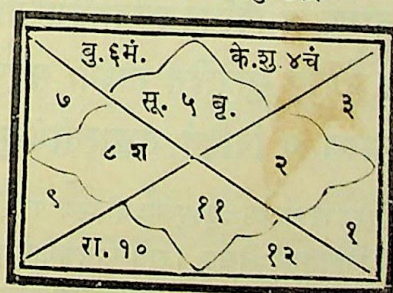 वु.६मं. के.शु.४चं
७ सू. ५ बृ. ३
८ श २
९ ११ १
रा. १० १२